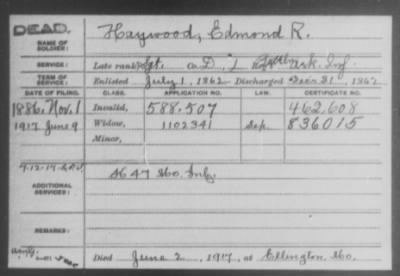 DEAD.
NAME OF SOLDIER:
Haywood, Edmond R.
SERVICE:
Late rank, Sgt. Co. D, 1 Ark. Inf.
TERM OF SERVICE:
Enlisted July 1, 1862 Discharged Dec. 31, 1862
DATE OF FILING. CLASS. APPLICATION NO. LAW. CERTIFICATE NO.
1886. Nov. 1 Invalid, 588.507 462.608
1917 June 9 Widow, 1102341 Sep. 836015
Minor,
ADDITIONAL SERVICES:
H 47 Mo. Inf.
REMARKS:
Died June 2, 1917, at Ellington Mo.